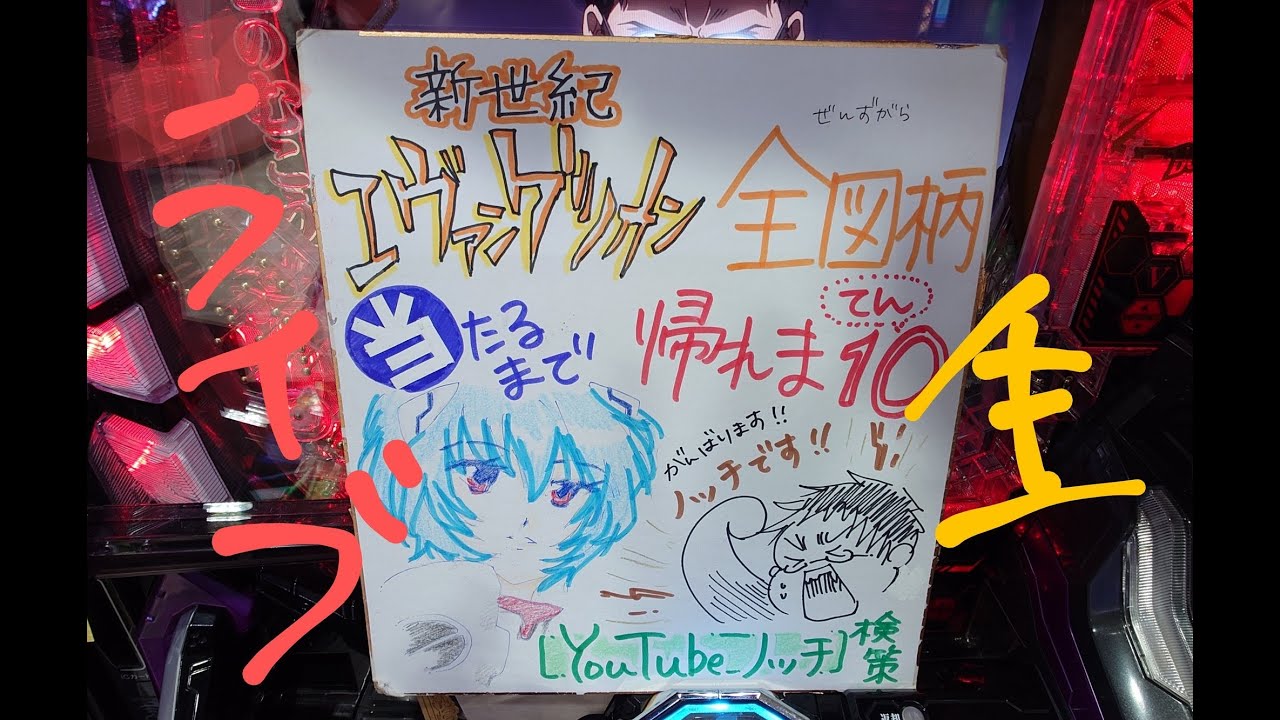 新世紀
エヴァンゲリオン
ぜんずがら
全図柄
当たる
まで
てん
帰れま10
がんばります!!
ノッチです!!
[YouTube ノッチ]
検策
生
ライブ